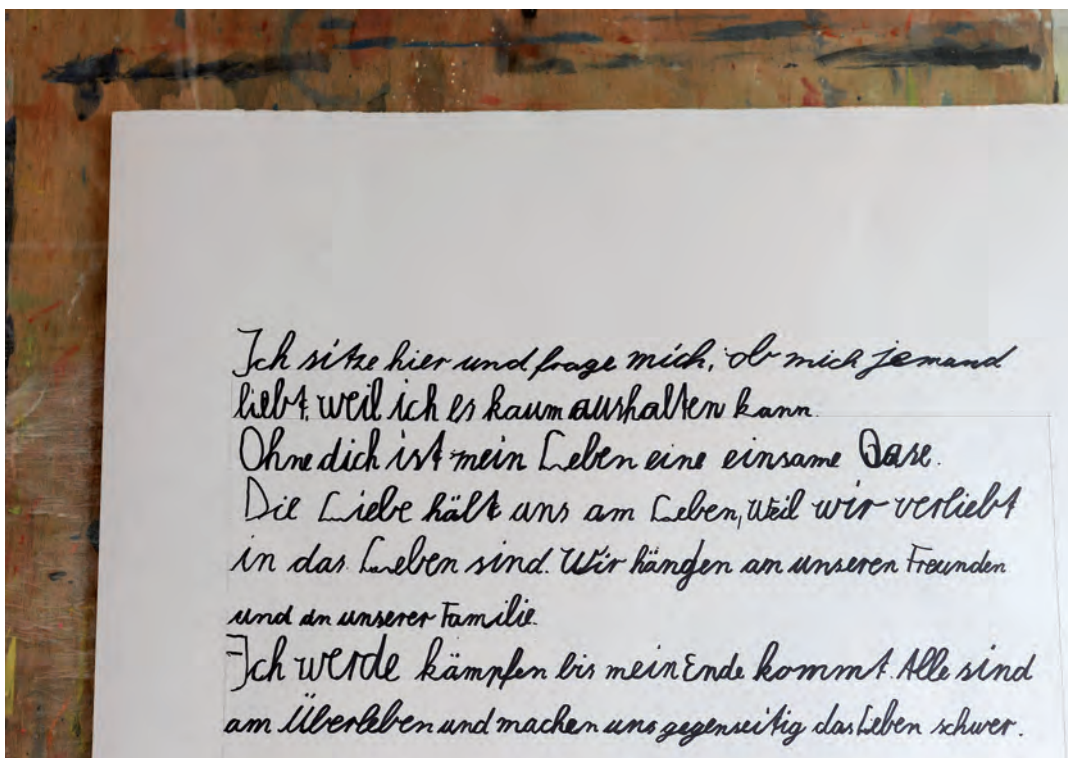 Ich sitze hier und frage mich, ob mich jemand
liebt, weil ich es kaum aushalten kann.
Ohne dich ist mein Leben eine einsame Oase.
Die Liebe hält uns am Leben, weil wir verliebt
in das Leben sind. Wir hängen an unseren Freunden
und an unserer Familie.
Ich werde kämpfen bis mein Ende kommt. Alle sind
am Überleben und machen uns gegenseitig das Leben schwer.